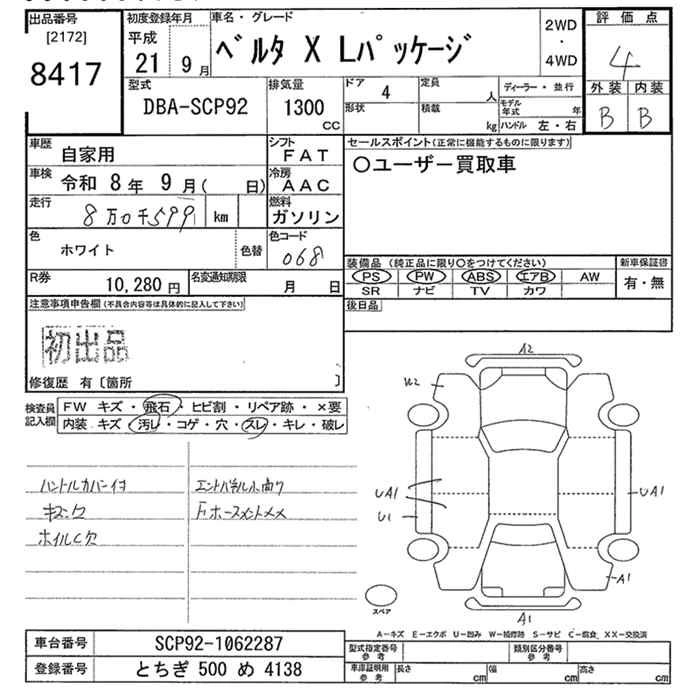 出品番号
[2172]
8417
初度登録年月
平成
21 9月
車名・グレード
ベルタ X Lパッケージ
2WD
・
4WD
評価点
4
外装 内装
B B
型式
DBA-SCP92
排気量
1300
CC
ドア 4
形状
定員 人
積載 kg
ディーラー・並行
モデル年式 年
ハンドル 左・右
車歴 自家用
車検 令和 8年 9月( 日)
走行 8万0千599 km
色 ホワイト 色替
シフト FAT
冷房 AAC
燃料 ガソリン
色コード 068
セールスポイント(正常に機能するものに限ります)
○ユーザー買取車
R券 10,280円
名変通知期限 月 日
装備品 (純正品に限り○をつけてください)
PS PW ABS エアB AW
SR ナビ TV カワ
新車保証書
有・無
後日品
注意事項申告欄(不具合内容等は具体的に記入して下さい)
初出品
修復歴 有〔箇所 〕
検査員記入欄
FW キズ・飛石・ヒビ割・リペア跡・×要
内装 キズ・汚レ・コゲ・穴・スレ・キレ・破レ
ハンドルカバー付
ホイルC欠
A2
W2
UA1
U1
UA1
A1
A1
スペア
A－キズ E－エクボ U－凹み W－補修跡 S－サビ C－腐食 XX－交換済
車台番号 SCP92-1062287
登録番号 とちぎ 500 め 4138
型式指定番号 参考
類別区分番号 参考
車庫証明用 参考
長さ cm
幅 cm
高さ cm